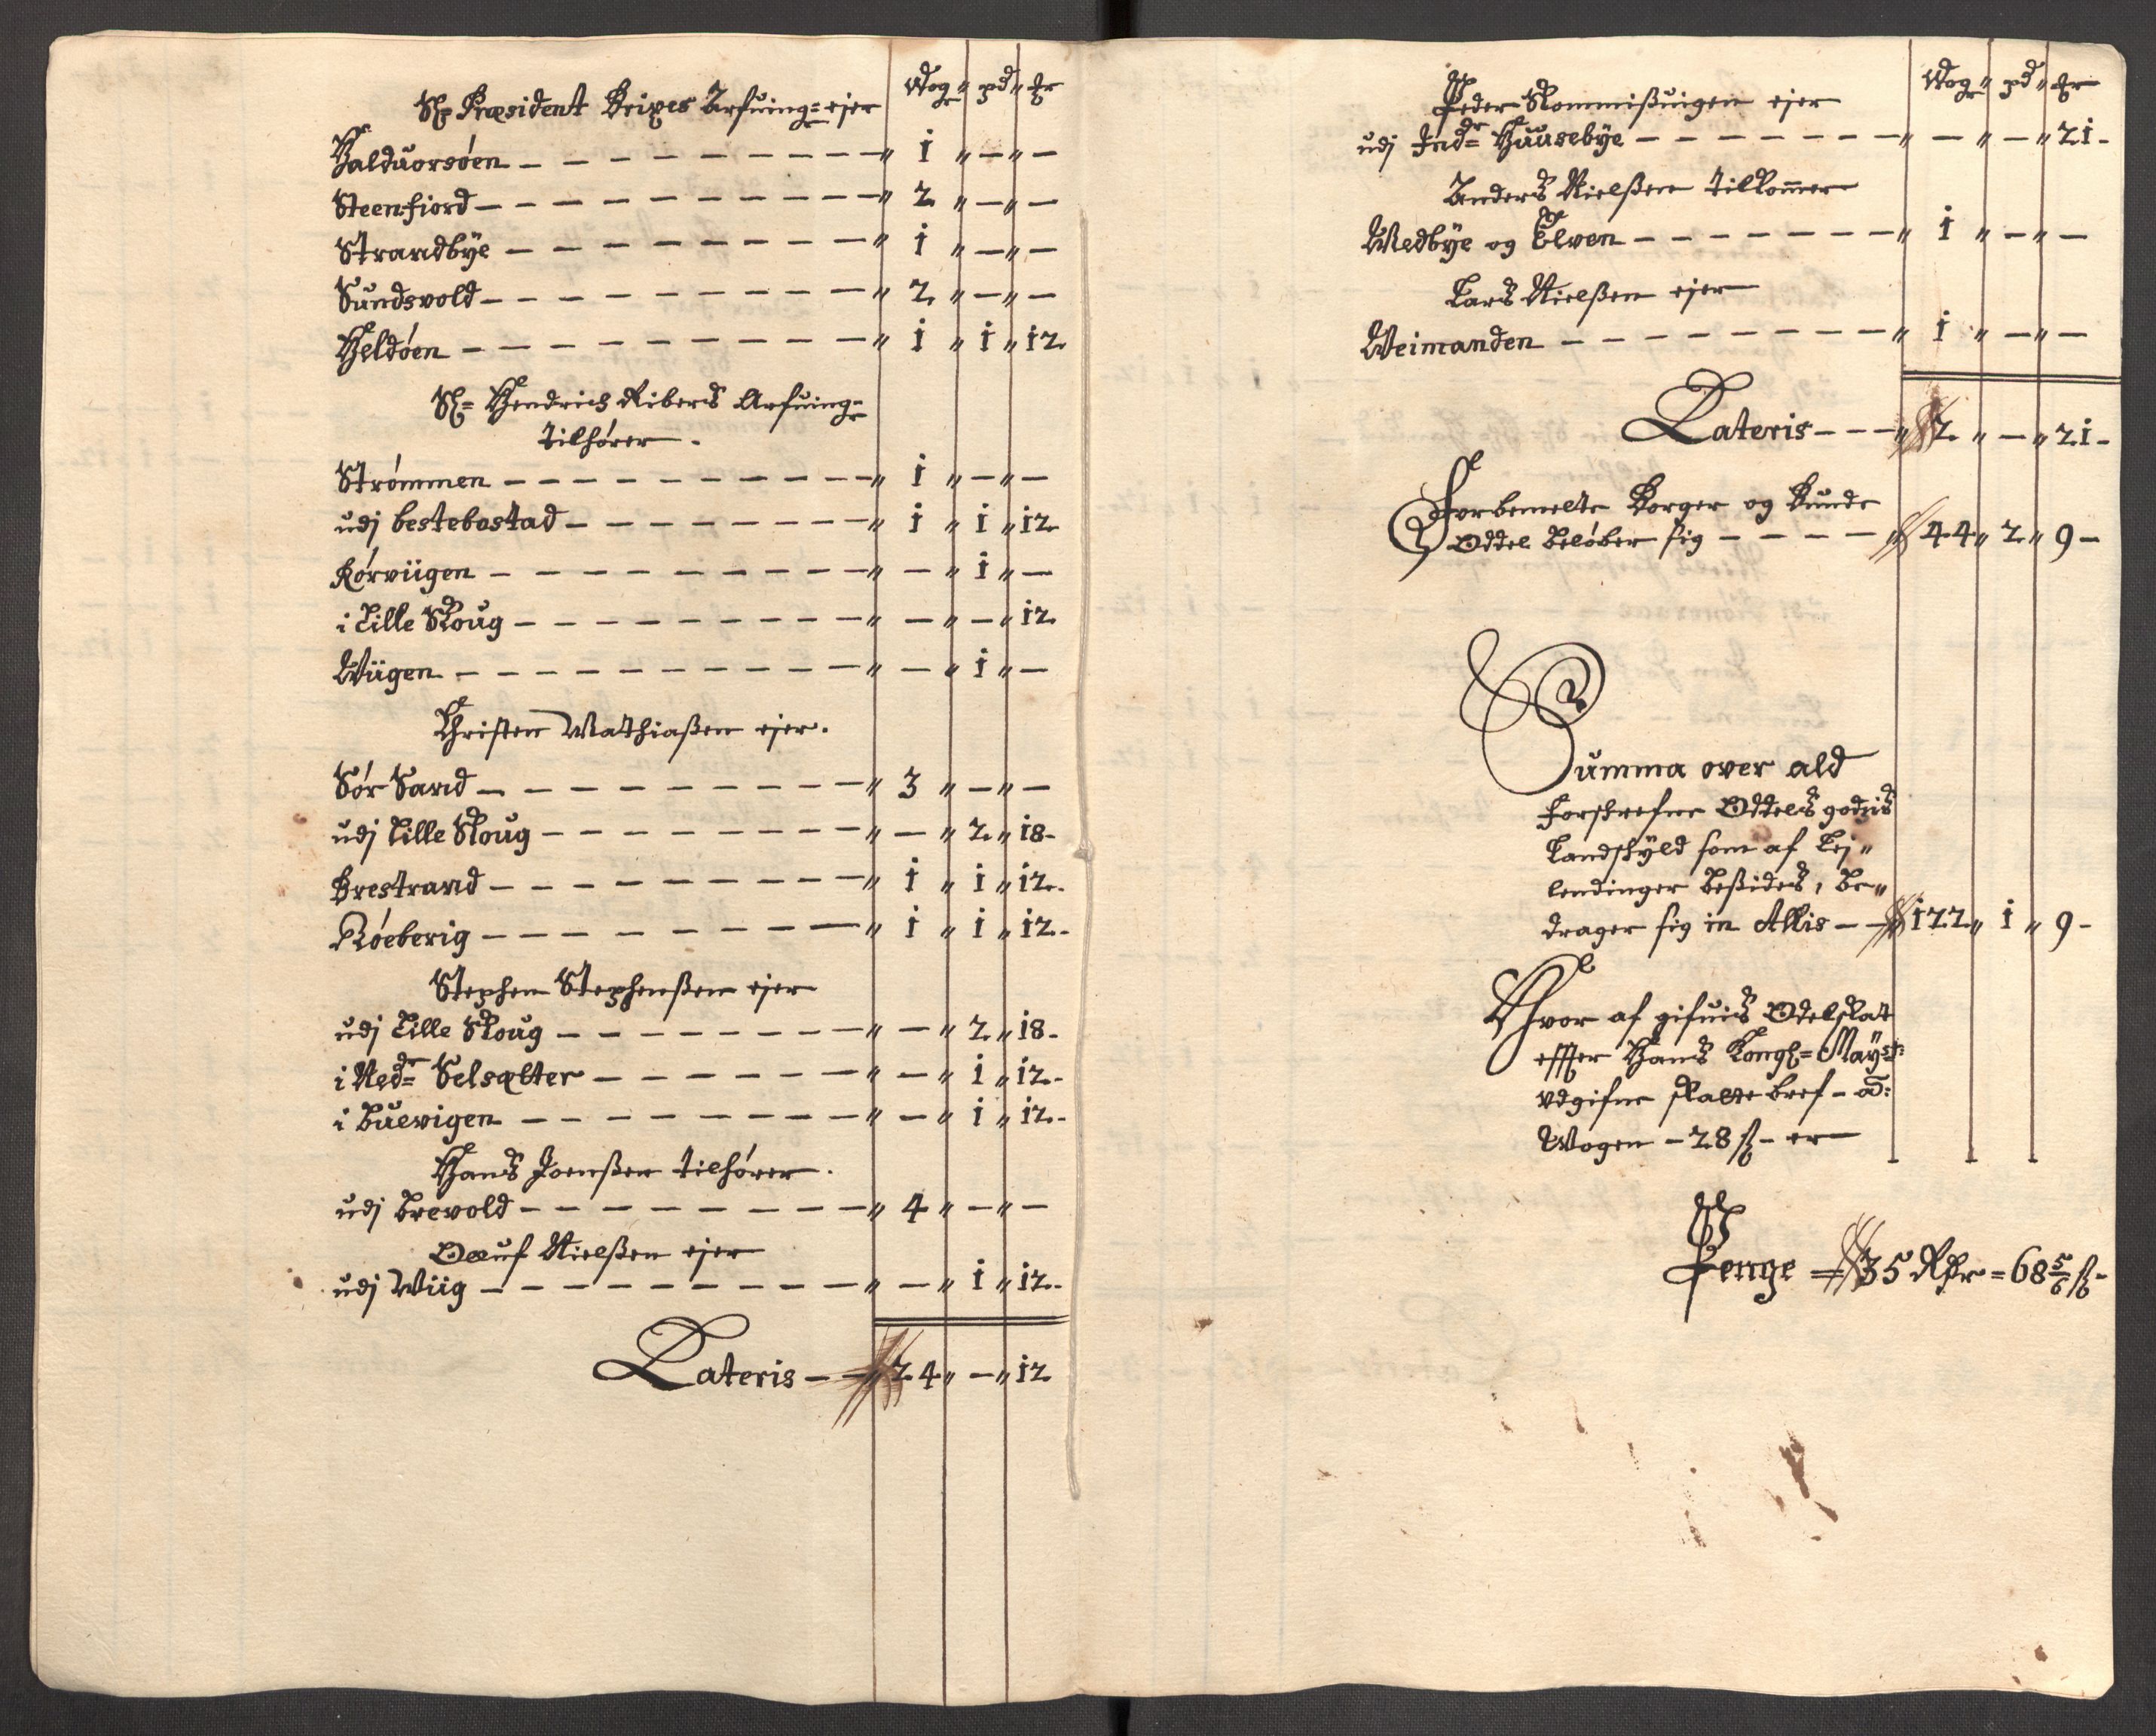 Vog " pd " Mr
Sl: Præsident Kripes Arfuing: ejer
Halduorsøen - - - " 1 " - " -
Steenfiord - - - " 2 " - " -
Strandbÿe - - - " 1 " - " -
Sundsvold - - - " 2 " - " -
Heldøen - - - " 1 " 1 " 12
Sl: Hendrich Ribers Arfuing:
tilhører.
Strømmen - - - " 1 " - " -
udj bestebostad - - - " 1 " 1 " 12
Rørviigen - - - " - " 1 " -
i Lille Skoug - - - " - " - " 12
Wiigen - - - " - " 1 " -
Christen Mathiaßen ejer.
Sør Sand - - - " 3 " - " -
udj Lille Skoug - - - " - " 2 " 18 -
Brestrand - - - " 1 " 1 " 12 -
Røeberig - - - " 1 " 1 " 12 -
Stephen Stephenßen ejer
udj Lille Skoug - - - " - " 2 " 18 -
i Nedr: Selsælter - - - " - " 1 " 12 -
i Buevigen - - - " - " 1 " 12 -
Hans Joenßen tilhører.
udj Brevold - - - " 4 " - " -
Oeluf Nielßen ejer
udj Wiig - - - " - " 1 " 12 -
Lateris - - " 24 " - " 12
Vog " pd " Mr
Peder Kommißuigen ejer
udj Indr: Huusebÿe - - - " - " - " 21 -
Anders Nielßen tilkommer
Medbÿe og Elven - - - " 1 " - " -
Lars Nielßen ejer
Weimanden - - - " 1 " - " -
Lateris - - - " 2 " - " 21 -
Forbemelte Borger og Bunde
Oddel beløber sig - - - " 44 " 2 " 9 -
Summa over ald
forskrefne Oddels godzis
Landskÿld som af Lej"
lendinger beßides, be"
drager sig in Allis - - " 122 " 1 " 9 -
Hvor af gifuis Odelskat
effter Hans Kongl: Maÿst:
udgifne skatte bref - ad:
Wogen - 28 s - er
Penge = 35 Rdr = 68 5/6 s -